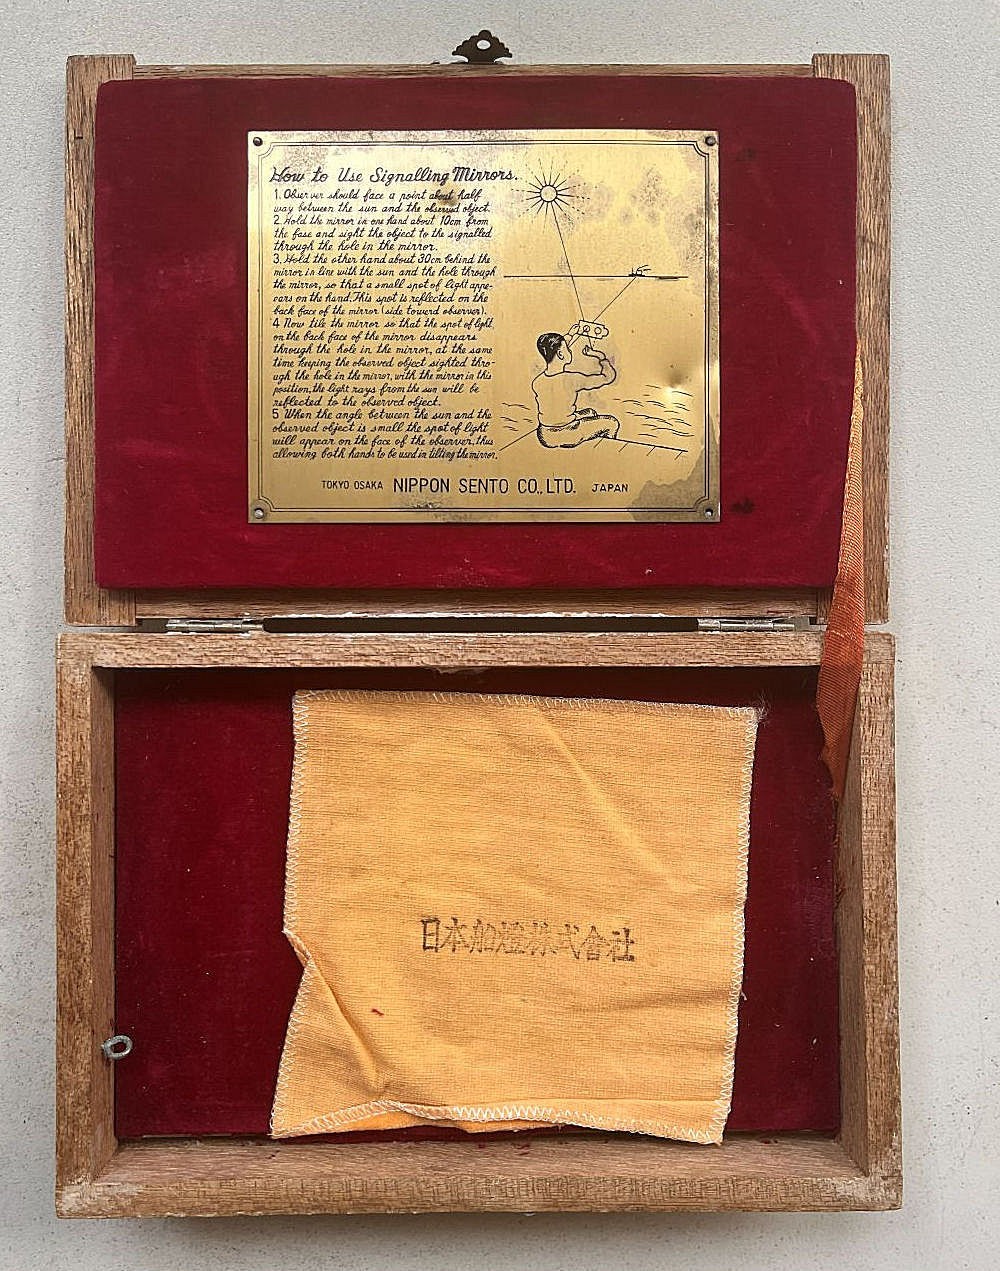 How to Use Signalling Mirrors.
1. Observer should face a point about half
way between the sun and the observed object.
2. Hold the mirror in one hand about 10cm from
the fase and sight the object to the signalled
through the hole in the mirror.
3. Hold the other hand about 30cm behind the
mirror in line with the sun and the hole through
the mirror, so that a small spot of light appe-
ears on the hand. This spot is reflected on the
back face of the mirror (side toward observer).
4 Now tile the mirror so that the spot of light,
on the back face of the mirror disappears
through the hole in the mirror, at the same
time keeping the observed object sighted thro-
ugh the hole in the mirror, with the mirror in this
position, the light rays from the sun will be
reflected to the observed object.
5 When the angle between the sun and the
observed object is small the spot of light
will appear on the face of the observer, thus
allowing both hands to be used in tilting the mirror.
TOKYO OSAKA NIPPON SENTO CO., LTD. JAPAN
日本船燈株式會社